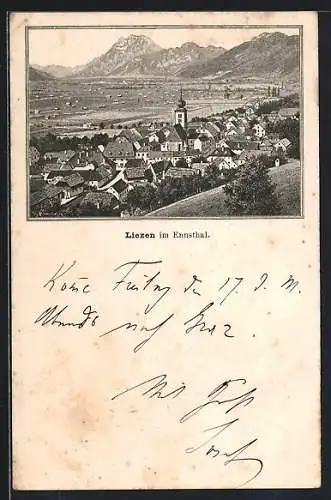 Liezen im Ennsthal.
Kome Freitag den 17. d. M.
Abends nach Graz.
Mit Gruß
Josef